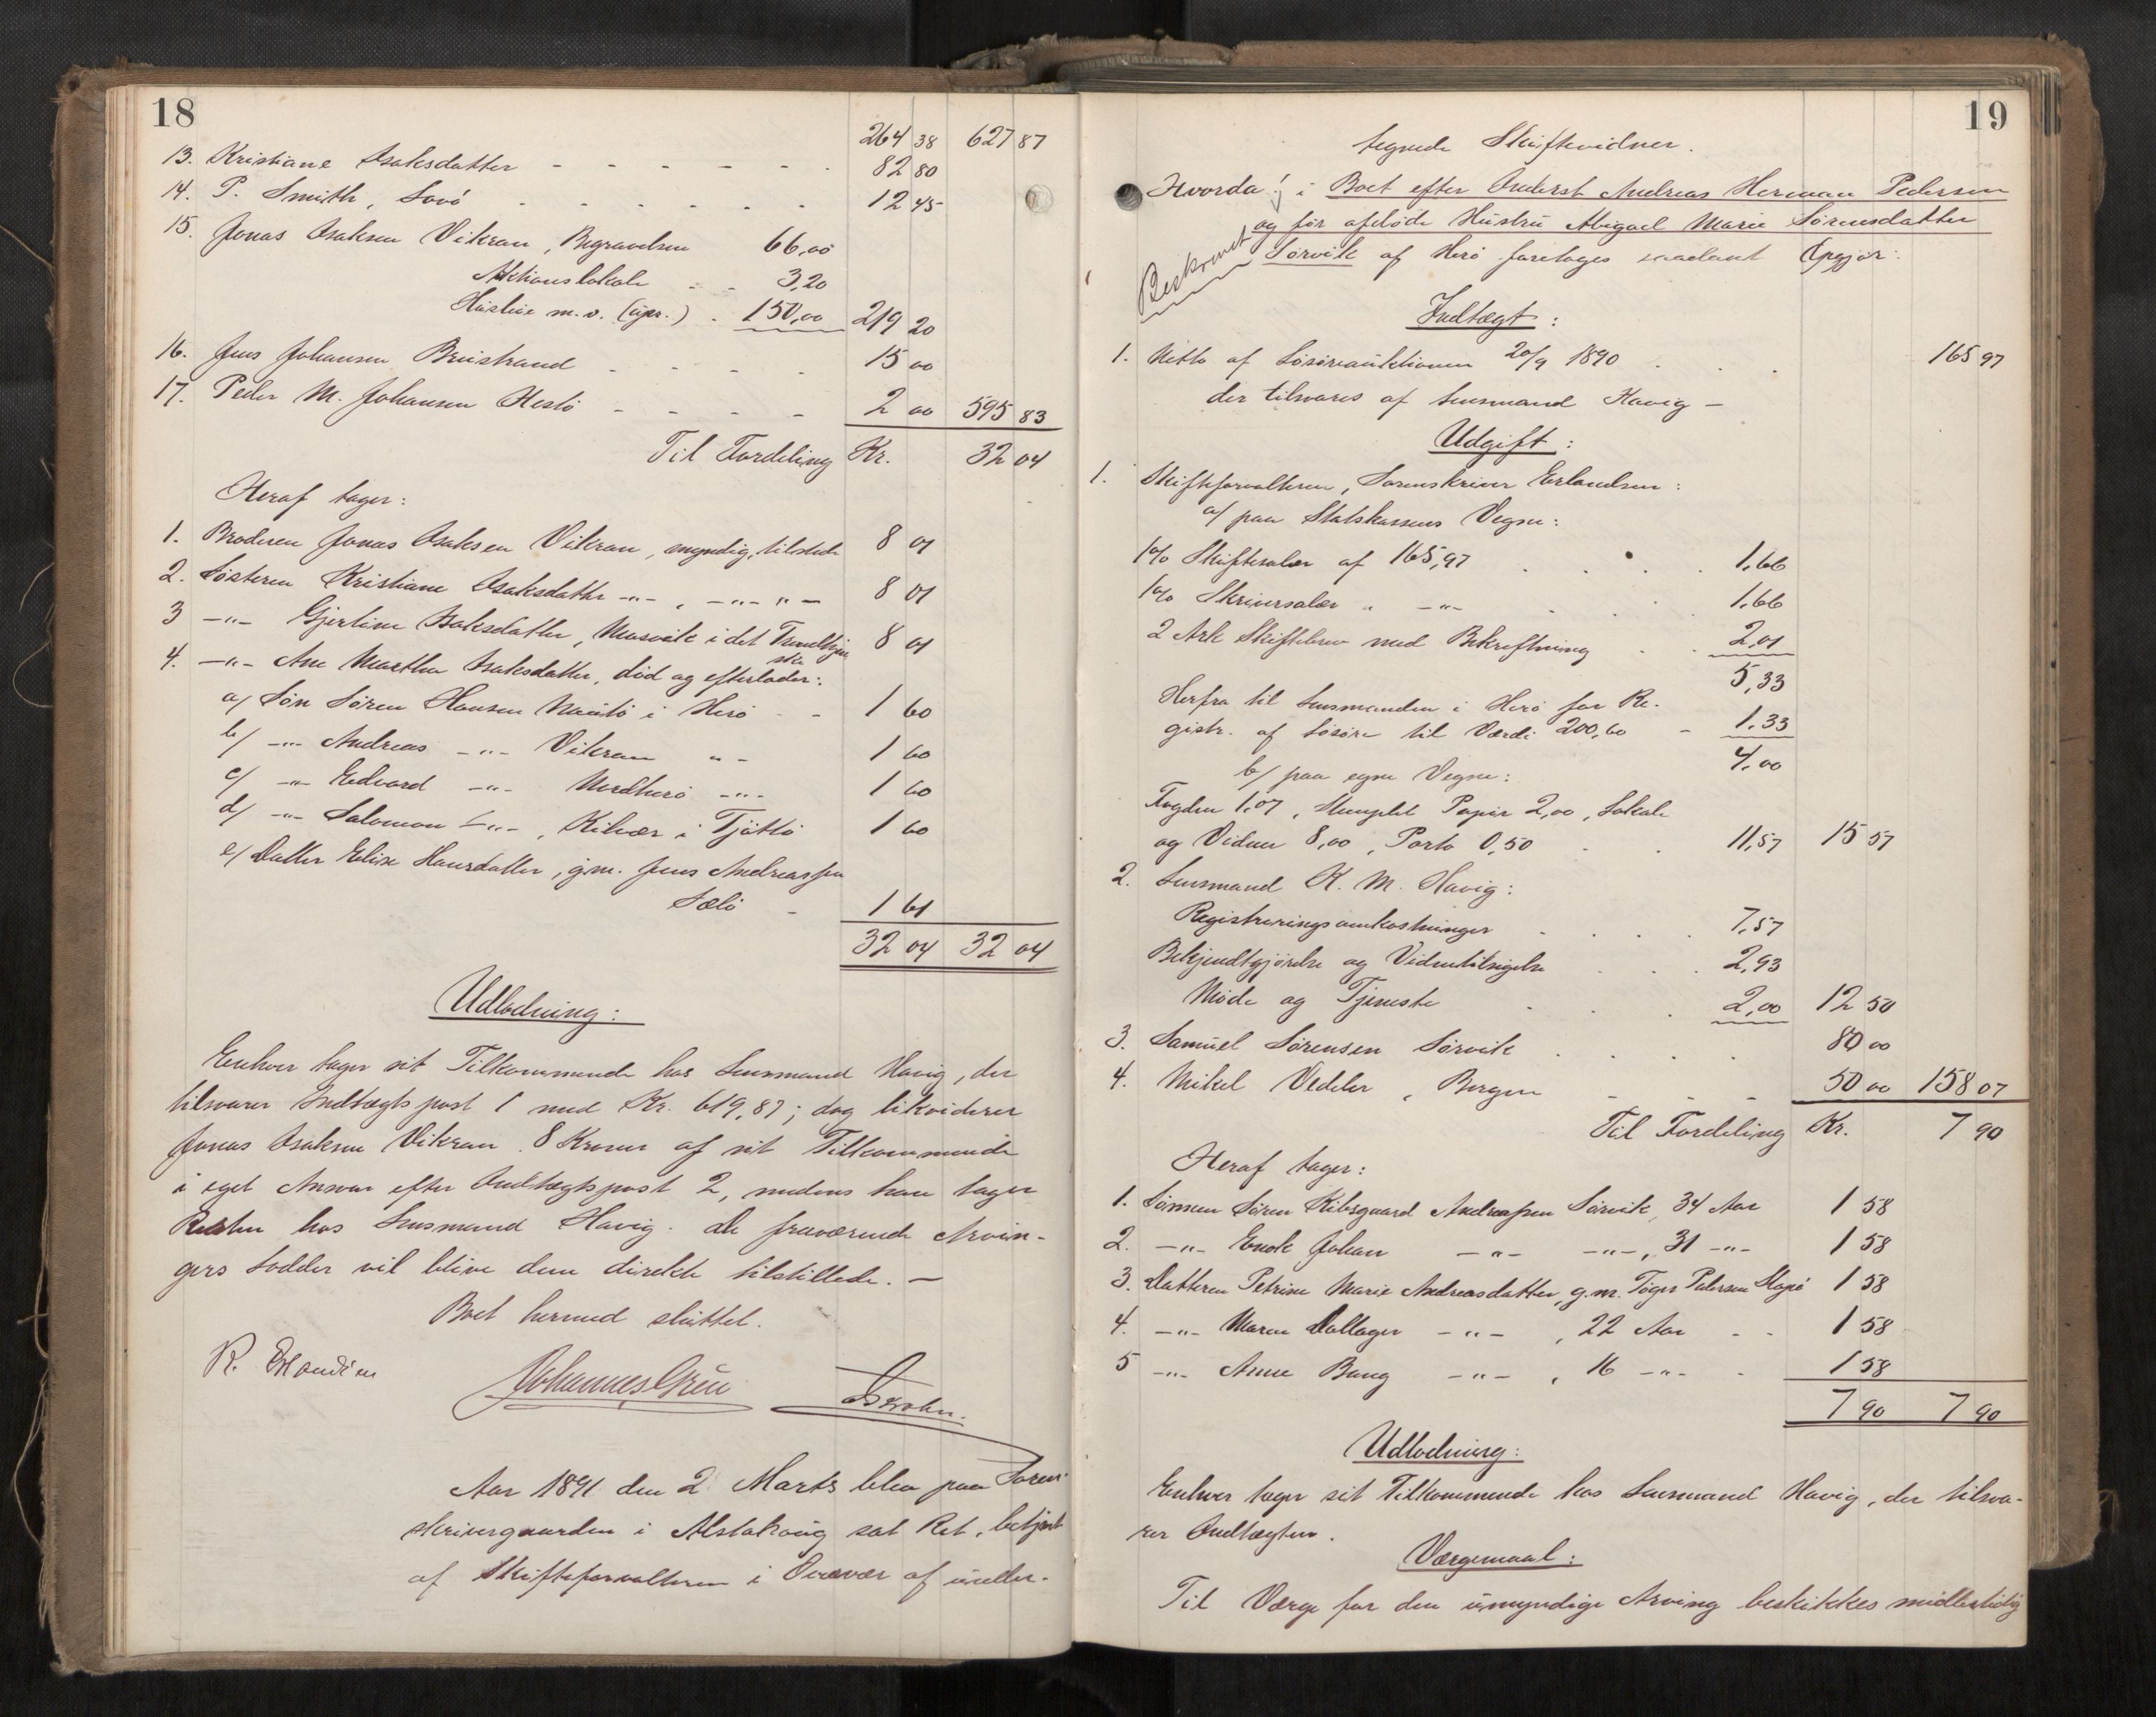 18
264 38 627 87
13. Kristiane Isaksdatter - - - - - - 82 80
14. P. Smith, Sovö . . . . . . 12 45
15. Jonas Isaksen Vikran, Begravelsen 66,00
Auktionslokale - - 3,20
Husleie m.v. (upr.) . 150,00 219 20
16. Jens Johansen Breistrand - - - - 15 00
17. Peder M. Johansen Hestö - - - - 2 00 595 83
Til Fordeling Kr. 32 04
Heraf tager:
1. Broderen Jonas Isaksen Vikran, myndig, tilstede 8 01
2. Søsteren Kristiane Isaksdatter -"-, -"- "- 8 01
3 -"- Gjertine Isaksdatter, Mosvik i det Trondhjemske 8 01
4. -"- Ane Martha Isaksdatter, död og efterlader:
a/ Søn Sören Hansen i Herö - - 1 60
b/ -"- Andreas -"- Vikran "- 1 60
c/ -"- Edvard -"- Nordherö -"- 1 60
d/ -"- Salomon -"-, Kilvær i Tjöttö 1 60
e/ Datter Elise Hansdatter, g.m. Jens Andreassen
Sælö - 1 61
32 04 32 04
Udlodning:
Enhver tager sit Tilkommende hos Lensmand Havig, der
tilsvarer Indtægtspost 1 med Kr. 619,87; dog likviderer
Jonas Isaksen Vikran 8 Kroner af sit Tilkommende
i eget Ansvar efter Indtægtspost 2, medens han tager
Resten hos Lensmand Havig. De fraværende Arvin-
gers Lodder vil blive dem direkte tilstillede. -
Boet hermed sluttet.
R. Erlandsen Johannes Grün
Aar 1891 den 2 Marts blev paa Soren-
skrivergaarden i Alstahaug sat Ret, betjent
af Skifteforvalteren i Overvær af under-
19
tegnede Skiftevidner.
Hvorda! i Boet efter Inderst Andreas Herman Pedersen
og før afdöde Hustru Abigael Marie Sörensdatter
Beskrevet
Sörvik af Herö foretages saadant Opgjör:
Indtægt:
1. Netto af Lösöreauktionen 20/9 1890 . . . 165 97
der tilsvares af Lensmand Havig -
Udgift:
1. Skifteforvalteren, Sorenskriver Erlandsen:
a/ paa Statskassens Vegne:
1% Skiftesalær af 165,97 . . . . 1,66
1% Skriversalær " -"- . . 1,66
2 Ark Skiftebrev med Bekreftning . . 2,01
5,33
Herfra til Lensmanden i Herö for Re-
gistr. af Lösöre til Værdi 200,60 - 1.33
4,00
b/ paa egne Vegne:
Fogden 1,07, Stemplet Papir 2,00, Lokale
og Vidner 8,00, Porto 0,50 . . 11,57 15 57
2. Lensmand K. M. Havig:
Registreringsomkostninger . . . . 7,57
Bekjendtgjörelse og Vidnetilsigelse . . . 2,93
Möde og Tjeneste . . . 2,00 12 50
3. Samuel Sörensen Sörvik . . . . . 80 00
4. Mikel Vedeler, Bergen - - - 50 00 158 07
Til Fordeling Kr. 7 90
Heraf tager:
1. Sönnen Sören Kibsgaard Andreassen Sörvik, 34 Aar 1 58
2. -"- Enok Johan -"- -"-, 31 -"- 1 58
3. Datteren Petrine Marie Andreasdatter, g.m. Töger Pedersen 1 58
4. -"- Maren Dallager -"-, 22 Aar - - 1 58
5 -"- Anne Bang -"-, 16 -"- - 1 58
7 90 7 90
Udlodning:
Enhver tager sit Tilkommende hos Lensmand Havig, der tilsva-
rer Indtægten.
Værgemaal:
Til Værge for den umyndige Arving beskikkes midlertidig